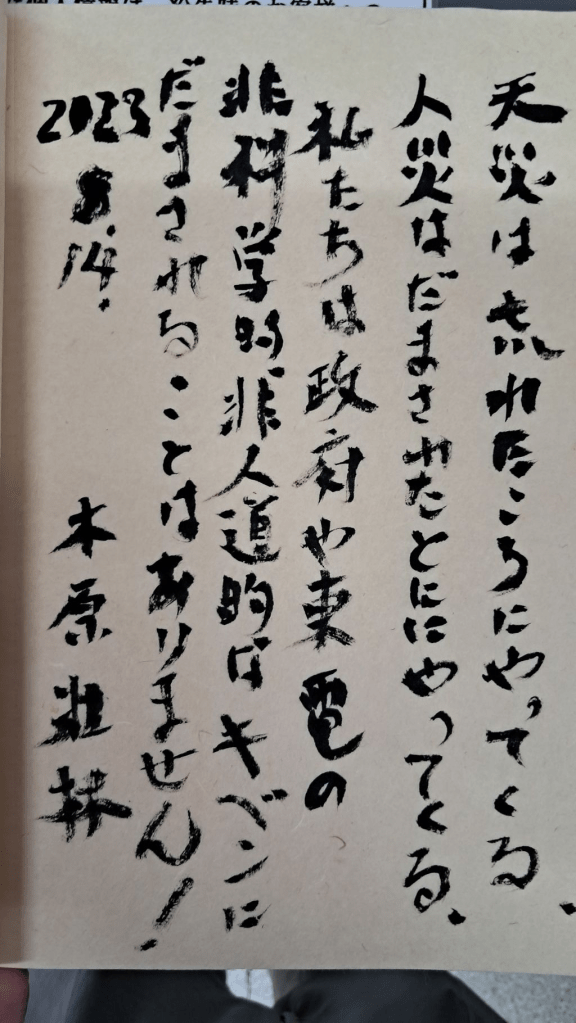 天災は忘れたころにやってくる、
人災はだまされたときにやってくる、
私たちは政府や東電の
非科学的、非人道的なキベンに
だまされることはありません!
2023 8.14. 木原壯林